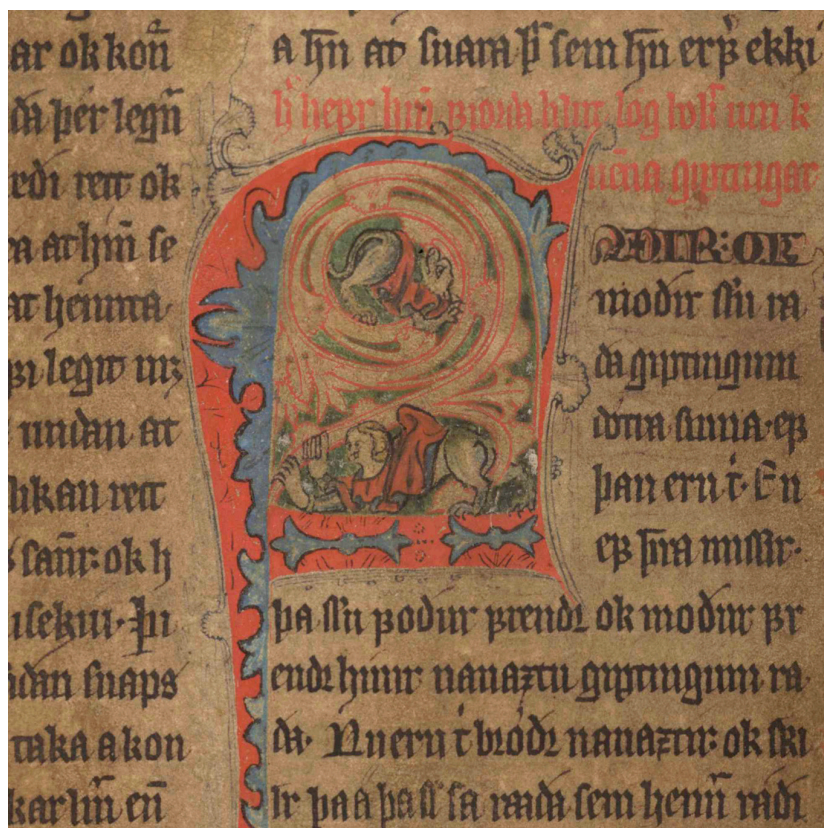 ar ok kon̄
da þer legn̄
redi rett ok
at hm̄ ſe
at heimta
legit
undan at
ſlikan rett
ſan̄r: ok h
ſnaps
taka a kon
kar hm̄ en̄
a hn̄ at ſuara þͥ ſem hn̄ erꝼ ekki
heꝼr hin̄ ꝼiorda hlut log bok um k
uēna giptingar
FADIR: OK
modir ſku ra
da giptingum
dottra ſinna. eꝼ
þau eru t̓. En
eꝼ þra miſſir.
þa ſku ꝼodur ꝼrendꝛ ok modur ꝼr
endꝛ hinir nanaztu giptingum ra
da. Nu eru t̓ brodꝛ nanaztir: ok ſki
lr þa a þa ſꝉ ſa rada ſem henn̄ radi